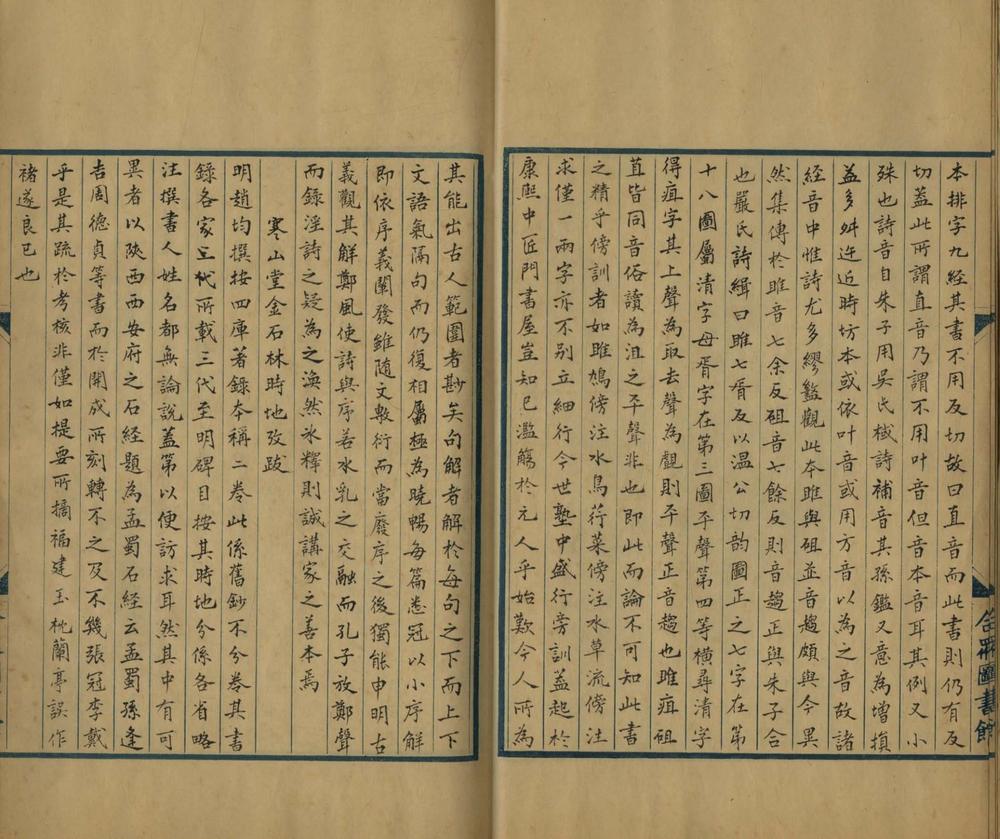 本排字九經其書不用反切故曰直音而此書則仍有反
切蓋此所謂直音乃謂不用叶音但音本音耳其例又小
殊也詩音自朱子用吳氏棫詩補音其孫鑑又意為增損
益多舛迕近時坊本或依叶音或用方音以為之音故諸
經音中惟詩尤多繆盭觀此本雎與砠並音趨頗與今異
然集傳於雎音七余反砠音七餘反則音趨正與朱子合
也嚴氏詩緝曰雎七胥反以温公切韵圖正之七字在第
十八圖屬清字母胥字在第三圖平聲第四等橫尋清字
得疽字其上聲為取去聲為覰則平聲正音趨也雎疽砠
苴皆同音俗讀為沮之平聲非也即此而論不可知此書
之精乎傍訓者如雎鳩傍注水鳥荇菜傍注水草流傍注
求僅一兩字亦不別立細行今世塾中盛行旁訓蓋起於
康熙中匠門書屋豈知已濫觴於元人乎始歎今人所為
合眾圖書館
其能出古人範圍者尠矣句解者解於每句之下而上下
文語氣隔句而仍復相屬極為曉暢每篇悉冠以小序解
即依序義闡發雖随文敷衍而當廢序之後獨能申明古
義觀其解鄭風使詩與序若水乳之交融而孔子放鄭聲
而錄淫詩之疑為之渙然氷釋則誠講家之善本焉
寒山堂金石林時地攷跋
明趙均撰按四庫著錄本稱二卷此係舊鈔不分卷其書
錄各家三代所載三代至明碑目按其時地分係各省略
注撰書人姓名都無論說蓋第以便訪求耳然其中有可
異者以陝西西安府之石經題為孟蜀石經云孟蜀孫逢
吉周德貞等書而於開成所刻轉不之及不幾張冠李戴
乎是其疏於考核非僅如提要所摘福建玉枕蘭亭誤作
褚遂良已也